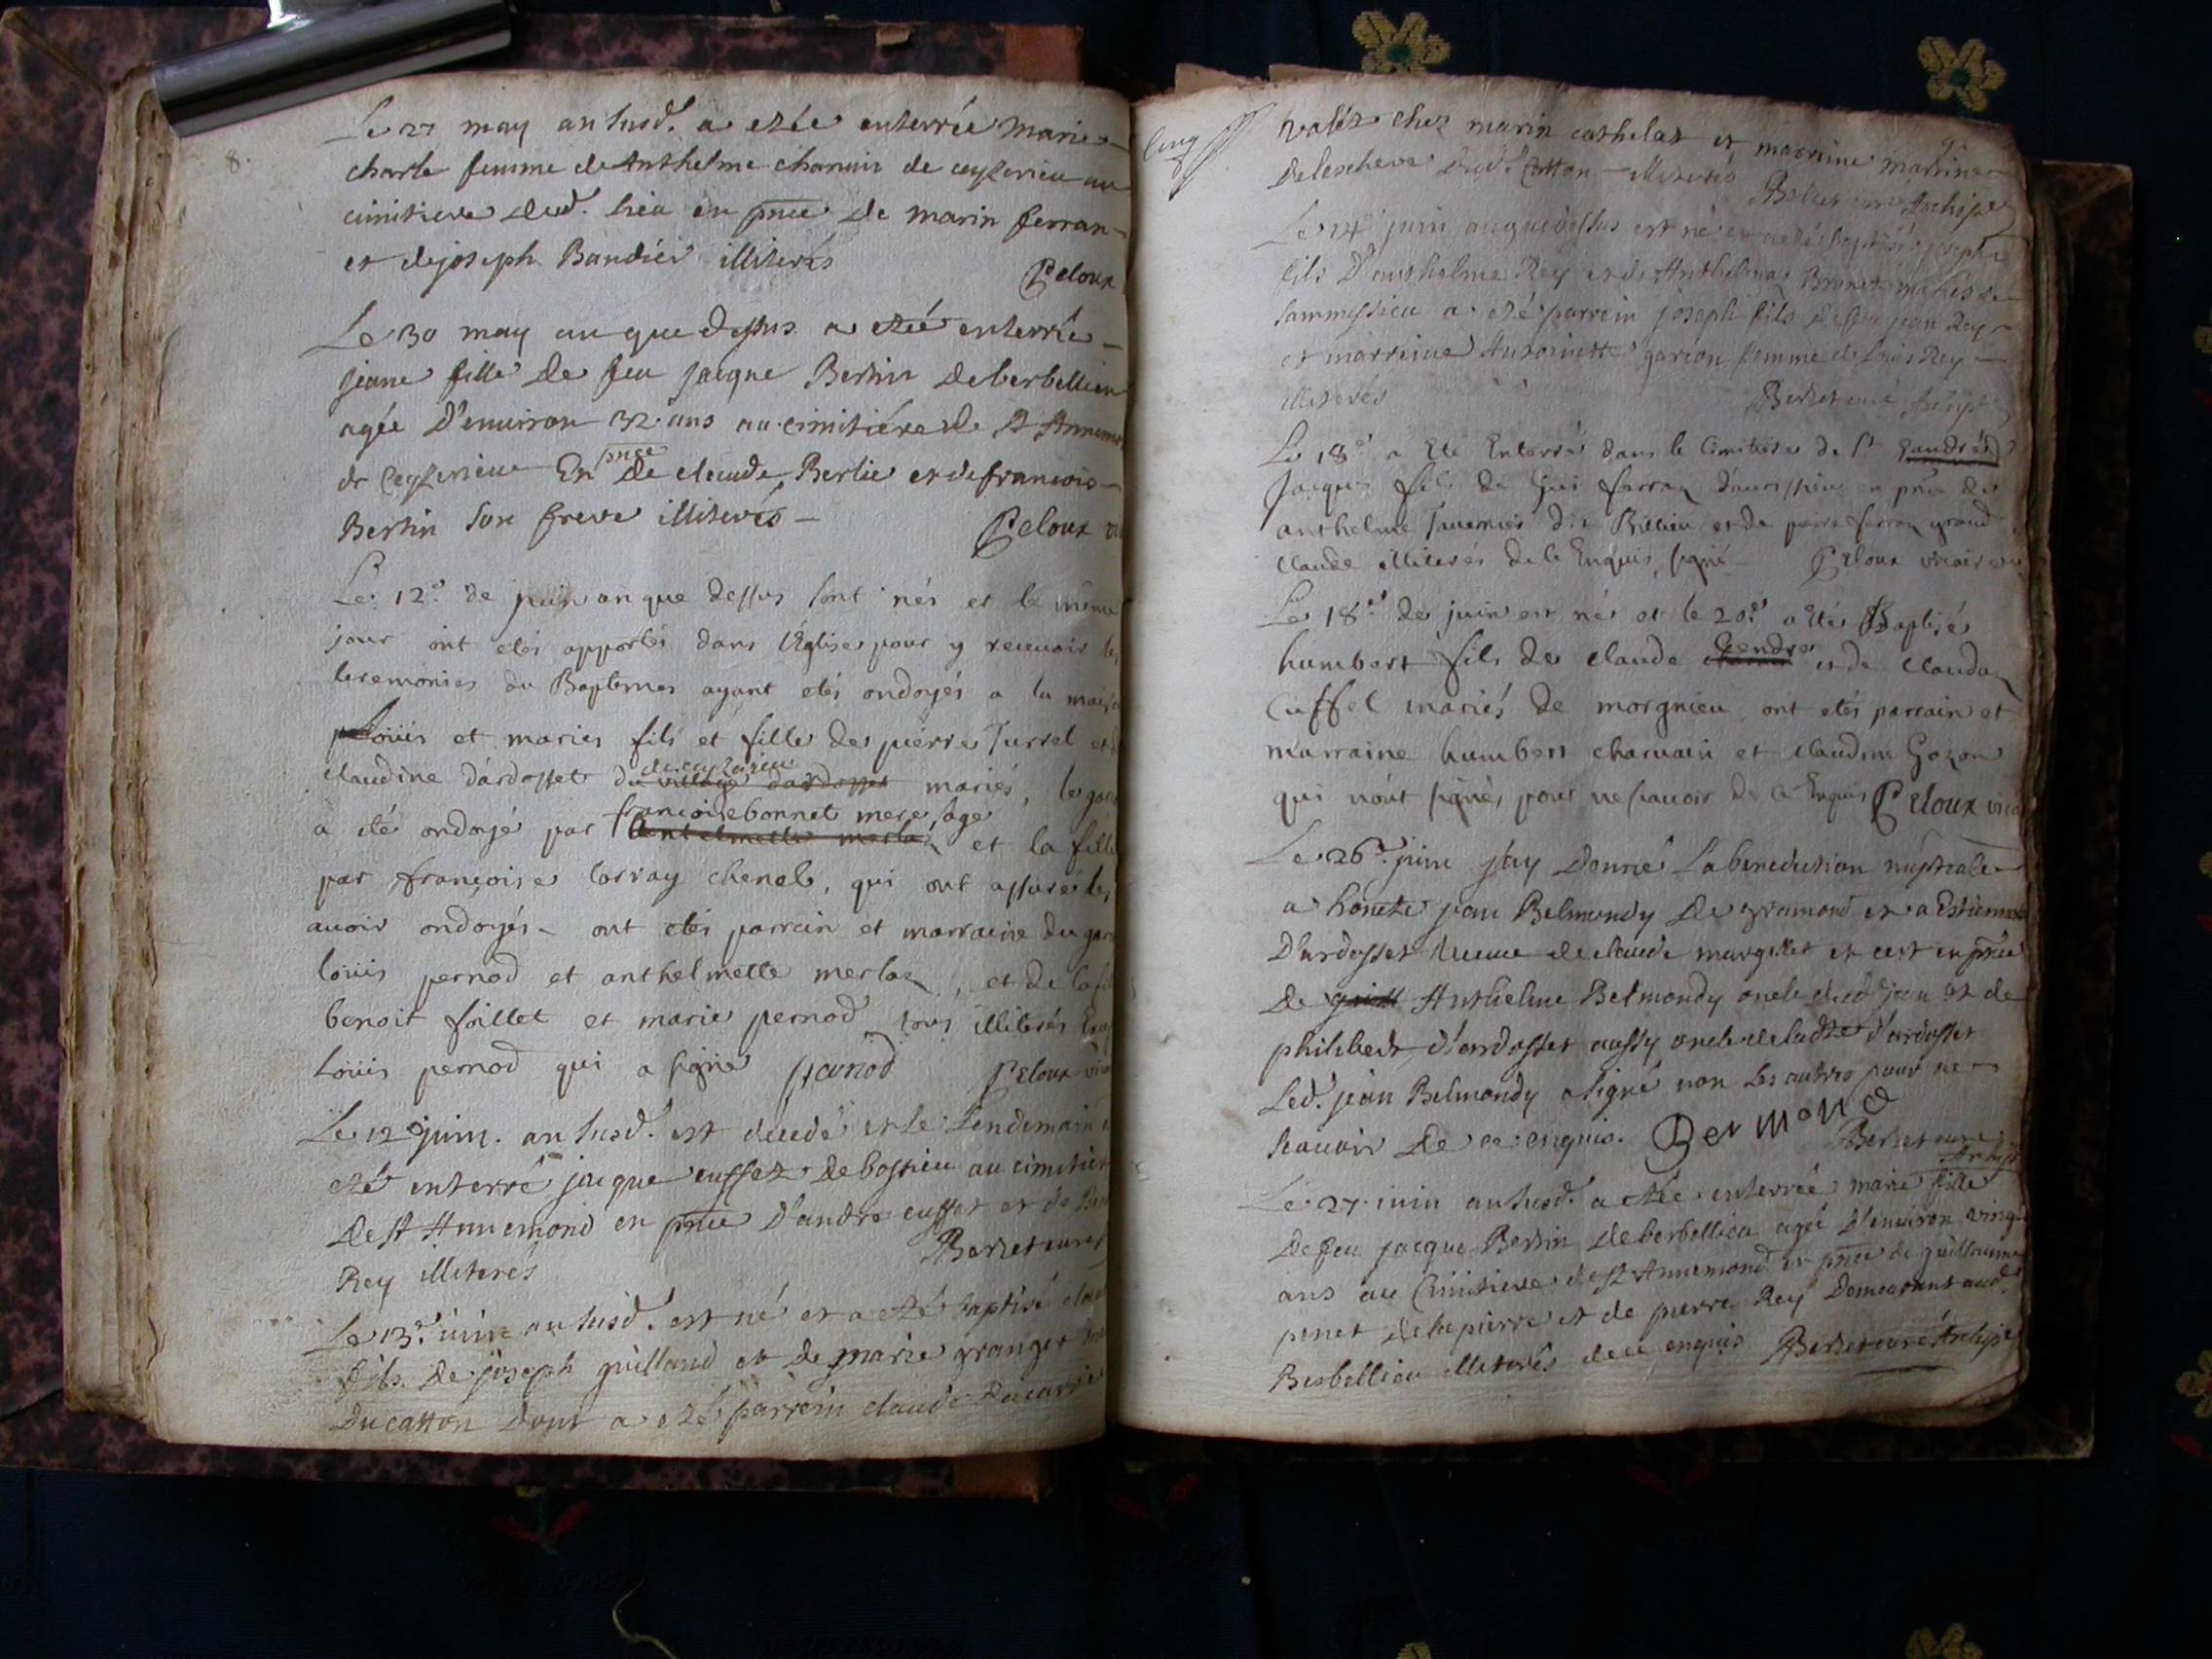 8.
Le 27 may an susd. a etée enterrée marie
charle femme de Anthelme chamin de ceyzerieu au
cimitiere dud. lieu en pnce de marin ferran
et de joseph Baudié illiterés
Peloux
Le 30 may an que dessus a etée enterrée
jeane fille de feu jacque Bertin de berbellieu
agée d'environ 32 ans au cimitiére de St Annemo
de Ceyzerieu En pnce de claude Berlie et de francois
Bertin son frere illiterés
Peloux vi
Le 12e de juin an que dessus sont nés et le même
jour ont etés apportés dans l'Eglise pour y recevoir les
ceremonies du Baptemes ayant etés ondoyés a la mais
Loüis et maries fils et fille de pierre Turrel et d
claudine dardosset du village dardosset de ceyzerieu mariés, le gar
a eté ondoyé par Antelmette merlaz francoise bonnet mere sage et la fille
par françoise Corray chenel, qui ont assuré les
avoir ondoyés ont etés parrein et marraine du gar
loüis pernod et anthelmette merlaz, et de la f
benoit faillet et marie pernod tous illiterés Exc
loüis pernod qui a signé pernod Peloux vica
Le 12e juin an susd. est decedé et le Lendemain a
eté enterré jacque cuffet de bossieu au cimitier
de st Annemond en pnce d'andre cuffet et de Ben
Rey illiterés Berzet curé
Le 13e juin an susd. est né et a eté baptisé clau
fils de joseph guilland et de marie granger
du catton dont a eté parrein claude ducarre
valet chez marin cathelat et marreine marrine
deleschere dud. Catton illiterés Berzet curé Archip
Le 14e juin an que dessus est né et a eté baptisé joseph
fils d'Anthelme Rey et de Anthelmaz Brunet mariés de
sammissieu a eté parrein joseph fils de feu jean Rey
et marreine Antoinette garcon femme de Louis Rey
illiterés Berzet curé Archip
Le 18e a Eté Enterré dans le Cimitiere de St
Jacques fils de Gui ferraz d'aurissieu en pnce de
anthelme Tavernier dit Billieu et de peire ferraz grand
claude illiterés de ce Enquis, signé Peloux vicaire
Le 18e de juin est né et le 20e a Eté Baptisé
humbert fils de claude Gendre et de Claudaz
Cuffet mariés de morgnieu ont etés parrain et
marraine humbert charvain et claudine Gozon
qui n'ont signés pour ne scavoir de ce Enquis Peloux vica
Le 26e juin j'ay Donné La benediction nuptiale
a honete jean Belmondy de gramond et a Estiennette
D'ardosset veuve de claude margillet et cest en pnce
de Anthelme Belmondy oncle dud. jean et de
philibert d'ardosset aussy oncle de ladte d'ardosset
Led. jean Belmondy a signé non les autres pour ne
scavoir de ce enquis. Bermond Berzet curé
Archip
Le 27 juin an susd. a etée enterrée marie fille
de feu jacque Bertin de berbellieu agée d'environ vingt
ans au Cimitiere de st Annemond en pnce de guillaume
penet de la pierre et de pierre Rey Demeurant aud.
Berbellieu illiterés de ce enquis Berzet curé Archip